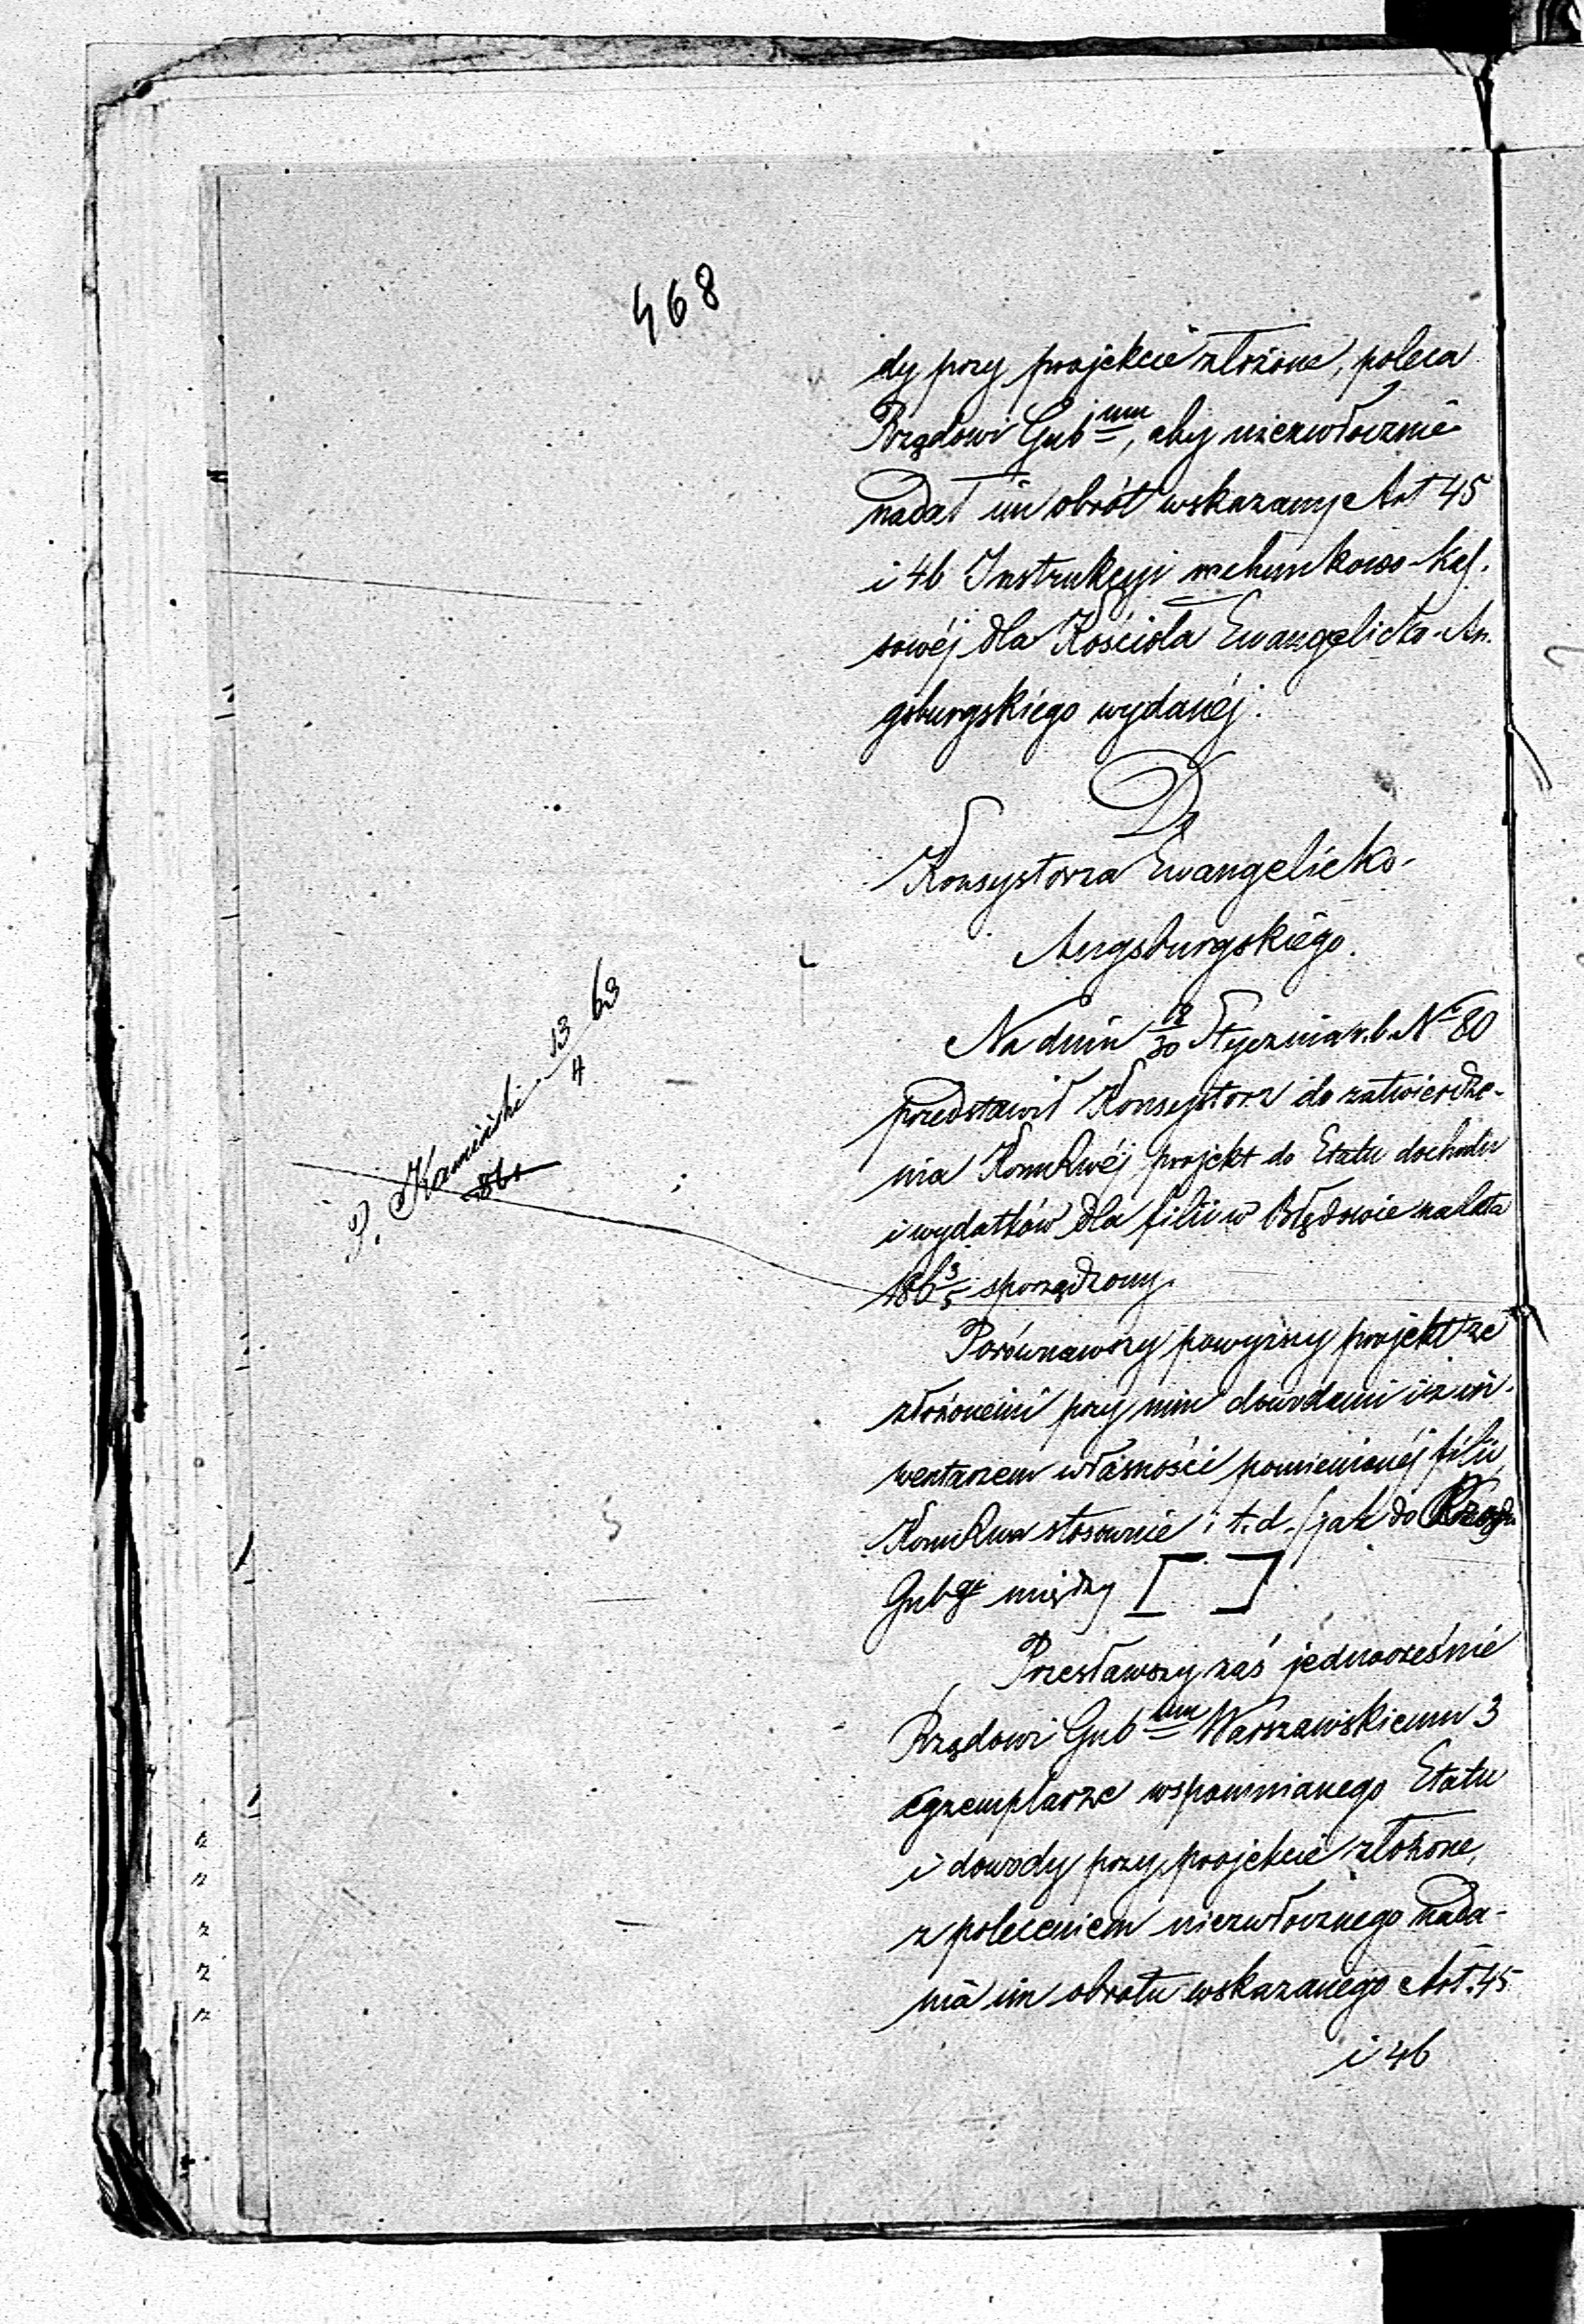 468
dy przy projekcie złożone, poleca
Rządowi Gub<sup>mu</sup>, aby niezwłocznie
nadał im obrót wskazany Art 45
i 46 Instrukcyi rachunkowo-Kas.
sowéj dla Kościoła Ewangelicko-Au.
gsburgskiego wydanéj.
Do
Konsystorza Ewangelicko-
Augsburgskiégo.
Na dniu 18/30 Stycznia r.b. N<sup>r</sup> 80
przedstawił Konsystorz do zatwierdze-
nia KomRwéj projekt do Etatu dochodu
i wydatków dla filii w Błędowie na lata
186 3/5 sporządzony.
P. Kamiński 13/4 63
Porównawszy powyższy projekt ze
złożonemi przy nim dowodami i z in-
wentarzem własności pomienionéj filii,
KomRwa stosownie i t.d. (jak do Rządu
Gubgo między [ ]
Przesławszy zaś jednocześnie
Rządowi Gub<sup>mu</sup> Warszawskiemu 3
egzemplarze wspomnianego Etatu
i dowody przy projekcie złożone,
z poleceniem niezwłocznego nada-
nia im obrotu wskazanego Art. 45
i 46